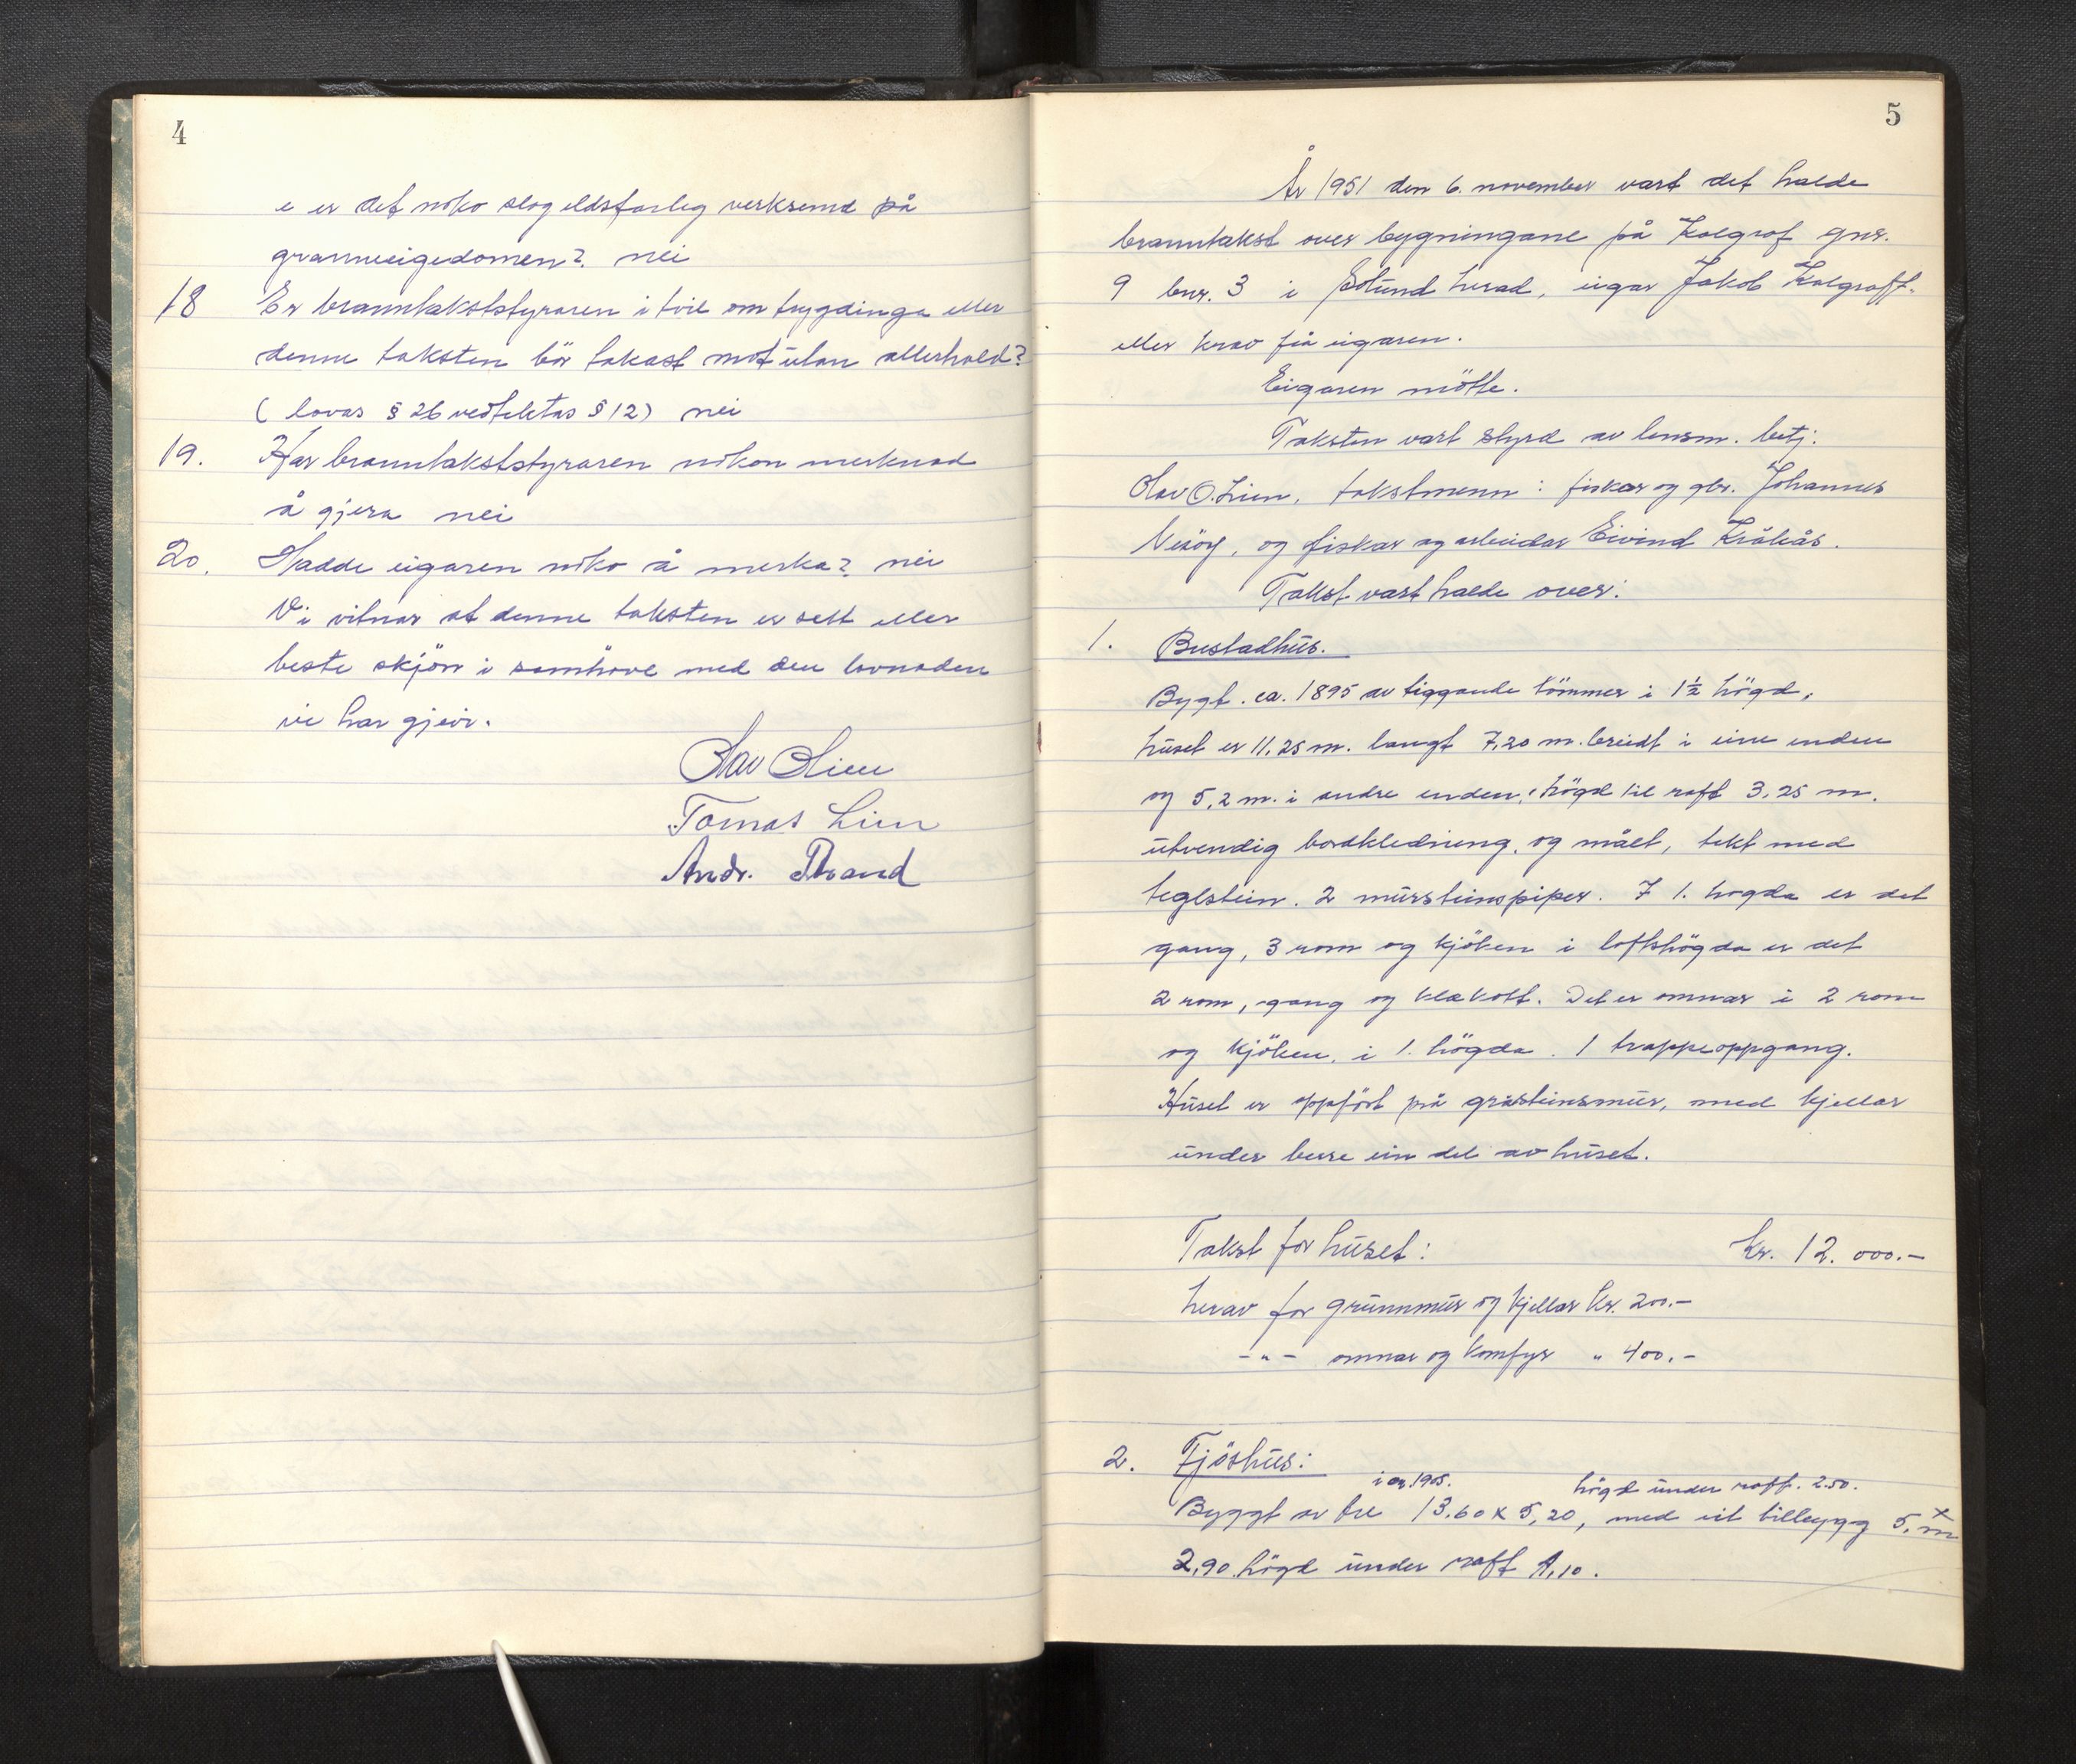 4
e er det noko slag eldsfarleg verksemd på
grannneigedomen? nei
18 Er branntakststyraren i tvil om trygdinga eller
denne taksten bör takast mot utan atterhald?
( lovas § 26 vedtektas § 12) nei
19. Har branntakststyraren nokon merknad
å gjera nei
20. Hadde eigaren noko å merka? nei
Vi vitnar at denne taksten er sett etter
beste skjön i samhöve med den lovnaden
vi har gjevi.
Olav O Lien
Tomas Lien
Andr. Strand
5
År 1951 den 6. november vart det halde
branntakst over bygningane på Kolgrof gnr.
9 bnr. 3 i Solund herad, eigar Jakob Kolgroff.
etter krav frå eigaren.
Eigaren mötte.
Taksten vart styrd av lensm. betj.
Olav O. Lien, takstmenn: fiskar og gbr. Johannes
Nesöy, og fiskar og arbeidar Eivind Kråkås.
Takst vart halde over:
1. Bustadhus.
Bygt. ca. 1895 av liggande tömmer i 1½ högd,
huset er 11.25 m. langt 7,20 m. breidt i eine enden
og 5,2 m. i andre enden, högd til raft 3,25 m.
utvendig bordkledning, og målt, tekt med
teglstein. 2 mursteinspiper. I 1. högda er det
gang, 3 rom og kjöken i loftshögda er det
2 rom, gang og klekott. Det er omnar i 2 rom
og kjöken, i 1. högda. 1 trappeoppgang.
Huset er oppfört på gråsteinsmur, med kjellar
under berre ein del av huset.
Takst for huset: Kr. 12.000.-
herav for grunnmur og kjellar Kr. 200.-
-"- omnar og komfyr " 400.-
2. Fjöshus:
i ca. 1905. högd under raft. 2.50.
Byggt av tre 13.60 x 5,20, med eit tilbygg 5. m x
2,90. högd under raft 1,10.